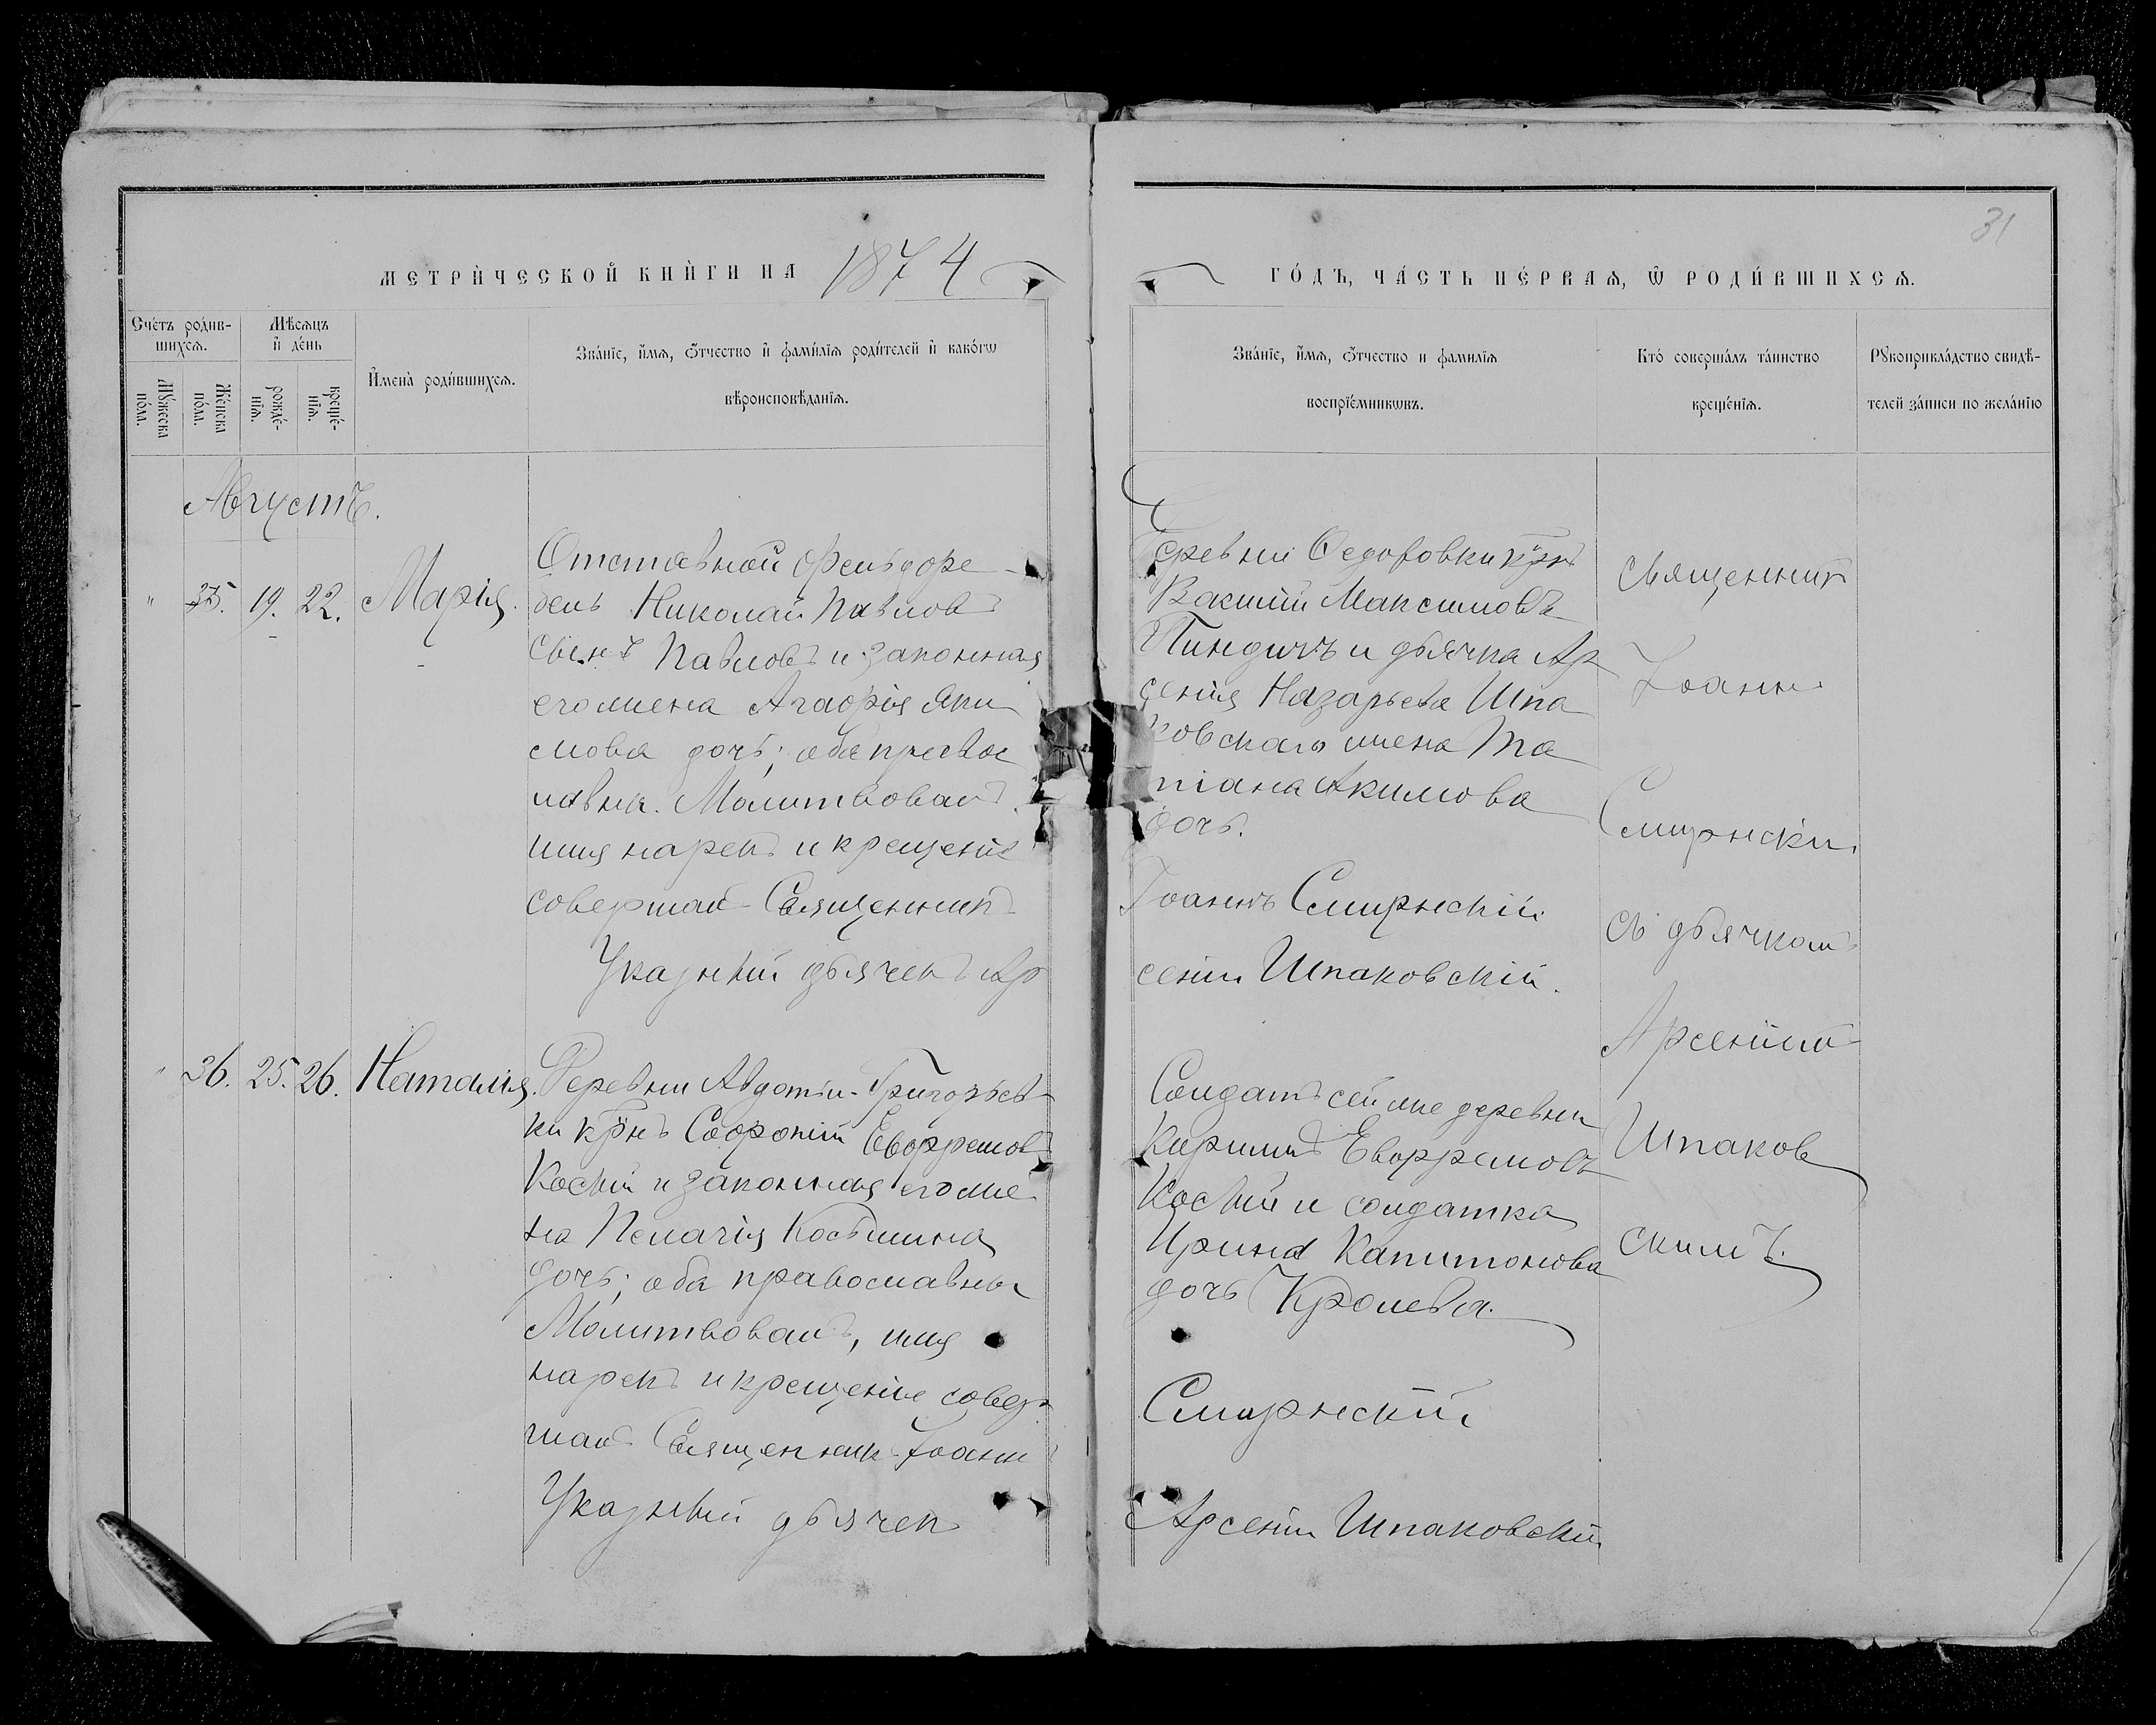 31
МЕТРИ́ЧЕСКОЙ КНИ́ГИ НА 1874
ГО́ДЪ, ЧА́СТЬ ПЕ́РВАѦ, Ѿ РОДИ́ВШИХСѦ.
Сче́тъ роди́в-
шихсѧ.
Мꙋ́жеска
по́ла.
Же́нска
по́ла.
Мѣ́сѧцъ
и҆ де́нь
рожде́-
нїѧ.
креще́-
нїѧ.
И҆мена̀ роди́вшихсѧ.
Зва́нїе, и҆́мѧ, ѻ҆́тчество и҆ фами́лїѧ роди́телей и҆ како́гѡ
вѣроисповѣ́данїѧ.
Зва́нїе, и҆́мѧ, ѻ҆́тчество и фами́лїѧ
воспрїе́мникѡвъ.
Кто́ соверша́лъ та́инство
креще́нїѧ.
Рꙋкоприкла́дство свидѣ́-
телей за́писи по жела́нїю
Августъ.
" 35. 19. 22. Марія.
Отставной Фельдфе-
бель Николай Павловъ
сынъ Павловъ и законная
его жена Агафія Яки
мова дочь; оба правос
лавны. Молитвовалъ
имя нарекъ и крещеніе
совершалъ Священникъ
Указный дьячекъ Ар
Деревни Федоровки крн̃ъ
Максимовъ
Пиндичъ и дьячка Ар
сенія Назарьева Шпа
ковскаго жена Та
тіана Акимова
дочь.
Іоаннъ Смирнскій
сеній Шпаковскій.
Священникъ
Іоаннъ
Смирнскій
съ дьячкомъ
Арсеніемъ
Шпаков
скимъ.
" 36. 25. 26. Наталія.
Деревни Авдотьи-Григорьев
ки крн̃ъ Софроній Евфремовъ
Косый и законная его же
на Пелагія Косьмина
дочь; оба православны
Молитвовалъ, имя
нарекъ и крещеніе совер
шалъ Священникъ Іоаннъ
Указный дьячекъ
Солдатъ сей же деревни
Кириллъ Евфремовъ
Косый и солдатка
Ирина Капитонова
дочь Кролева.
Смирнскій
Арсеній Шпаковскій